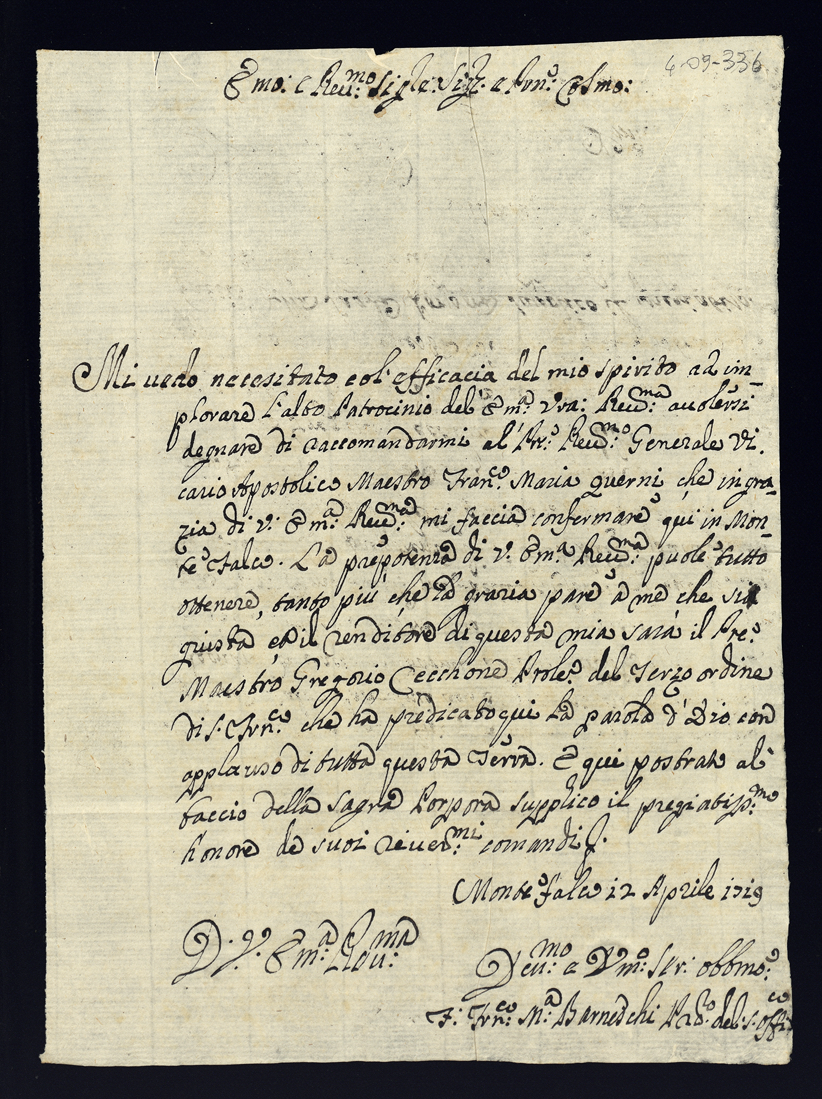 4-09-336
Emo: e Reu:mo Sigre: Sigr. e Prn:e Colmo:
Mi uedo necesitato col' efficacia del mio spirito ad im-
plorare l'alto Patrocinio del' Em:a Vra: Reu:ma auolersi
degnare di raccomandarmi al' Pre: Reu:mo Generale Vi.
cario Apostolico Maestro Fran:co Maria querni che in gra-
zia di V: Em:a Reu:ma mi faccia confermare qui in Mon-
te Falco. La prepotenza di V. Em:a Reu:ma puole tutto
ottenere, tanto più che la grazia pare à me che sia
giusta, et il renditore di questa mia sarà il Pre:
Maestro Gregorio Cecchone Profes: del Terzo ordine
di S. Frn:co che ha predicato qui la parola d'Dio con
applauso di tutta questa Terra. E qui postrato al'
baccio della sagra Porpora supplico il pregiatiss:mo
honore de suoi riuer:mi comandi
Monte falco 12 Aprile 1719
D. V. Em:a Reu:ma
Deu:mo e Vm:o Ser: obbmo:
F: Frn:co M:a Barnecchi del: S. Offi:co